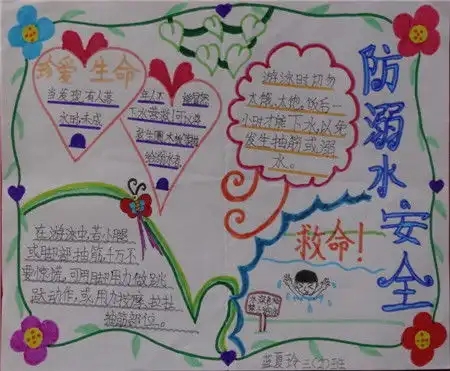 珍爱生命
当发现有人落
水时未成
年人不
下水营救!可以大
游泳时切勿
太饿、太饱。饭后一
小时才能下水,以免
发生抽筋或溺
水。
防溺水安全
在游泳中若小腿
或脚部抽筋千万不
要惊慌,可用脚用力做跳
跃动作,或用力按摩、拉扯
抽筋部位。
救命!
蓝夏玲 三(2)班